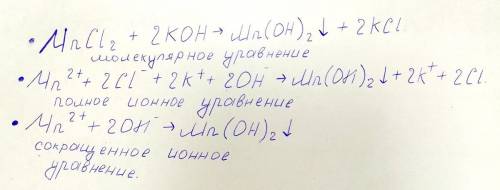 • MnCl₂ + 2KOH → Mn(OH)₂↓ + 2KCl.
молекулярное уравнение
• Mn²⁺ + 2Cl⁻ + 2K⁺ + 2OH⁻ → Mn(OH)₂↓ + 2K⁺ + 2Cl.
полное ионное уравнение
• Mn²⁺ + 2OH⁻ → Mn(OH)₂↓
сокращенное ионное
уравнение.